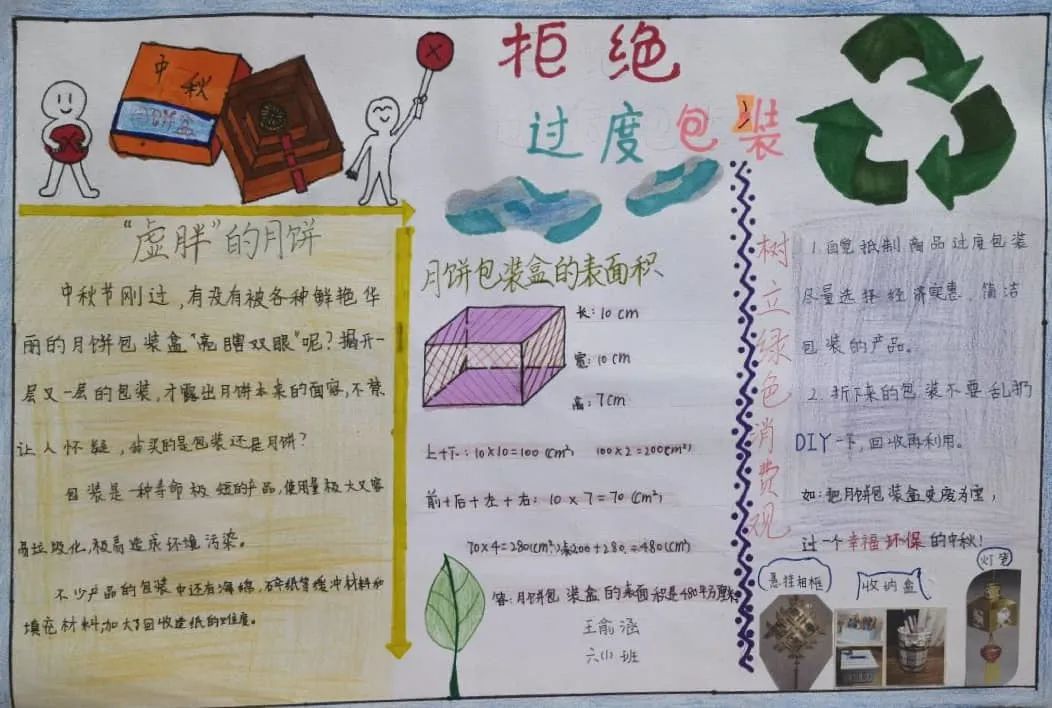 拒绝
过度包装
中秋
"虚胖"的月饼
中秋节刚过,有没有被各种鲜艳华
丽的月饼包装盒"亮瞎双眼"呢?揭开一
层又一层的包装,才露出月饼本来的面容,不禁
让人怀疑,買的是包装还是月饼?
包装是一种寿命极短的产品,使用量极大又容
易垃圾化,极易造成环境污染。
不少产品的包装中还有海绵,碎纸等缓冲材料和
填充材料,加大了回收造纸的难度。
月饼包装盒的表面积
长:10cm
宽:10cm
高:7cm
上+下:10×10=100(cm²) 100×2=200(cm²)
前+后+左+右:10×7=70(cm²)
70×4=280(cm²) 200+280=480(cm²)
答:月饼包装盒的表面积是480平方厘米
王俞涵
六(1)班
树立绿色消费观
1.自觉抵制商品过度包装
尽量选择经济实惠,简洁
包装的产品。
2.拆下来的包装不要乱扔
DIY一下,回收再利用。
如:把月饼包装盒变废为宝,
过一个幸福环保的中秋!
悬挂相框
收纳盒
灯笼